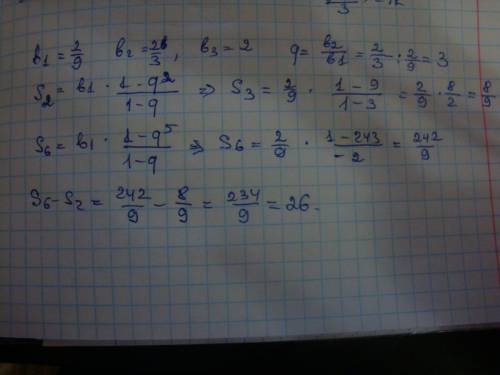 b₁ = 2/9   b₂ = 2/3,   b₃ = 2   q = b₂/b₁ = 2/3 : 2/9 = 3
S₂ = b₁ · (1-q²)/(1-q) ⇒ S₃ = 2/9 · (1-9)/(1-3) = 2/9 · 8/2 = 8/9
S₆ = b₁ · (1-q⁵)/(1-q) ⇒ S₆ = 2/9 · (1-243)/(-2) = 242/9
S₆-S₂ = 242/9 - 8/9 = 234/9 = 26.